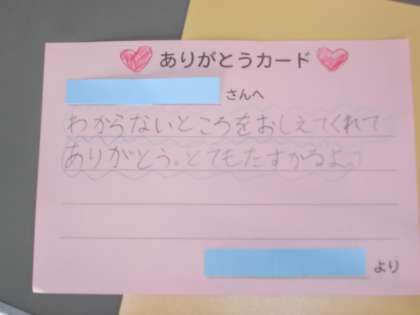 ありがとうカード
さんへ
わからないところをおしえてくれて
ありがとう。とてもたすかるよ。
より